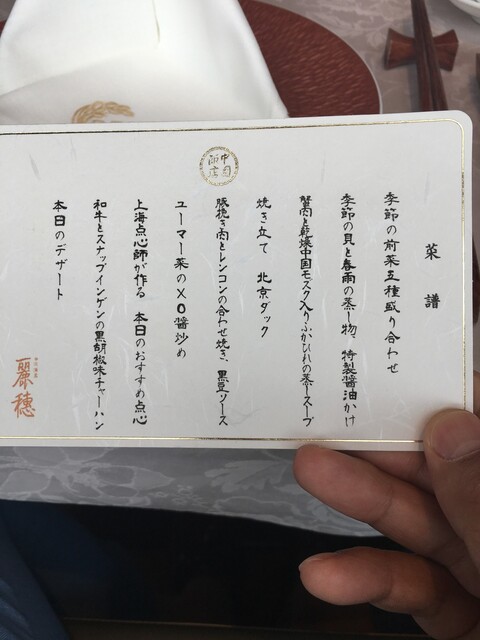 菜譜
季節の前菜五種盛り合わせ
季節の貝と春雨の蒸し物、特製醤油かけ
蟹肉と乾燥中国モスク入りふかひれの蒸しスープ
焼き立て 北京ダック
豚挽き肉とレンコンの合わせ焼き 黒豆ソース
ユーマー菜のXO醤炒め
上海点心師が作る 本日のおすすめ点心
和牛とスナップインゲンの黒胡椒味チャーハン
本日のデザート
中国飯店
麗穂